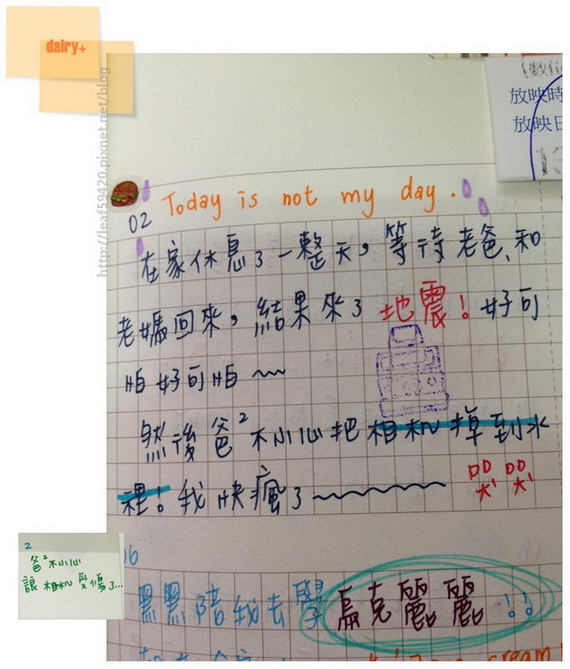 dairy+
http://leaf59420.pixnet.net/blog
放映時
放映日
13
02 Today is not my day.
在家休息了一整天,等待老爸、和
老媽回來,結果來了地震!好可
怕好可怕~~
然後爸²不小心把相机掉到水
裡!我快瘋了~~~~
哭哭
2
爸²不小心
讓相机受傷了...
06
黑黑陪我去學烏克麗麗!!